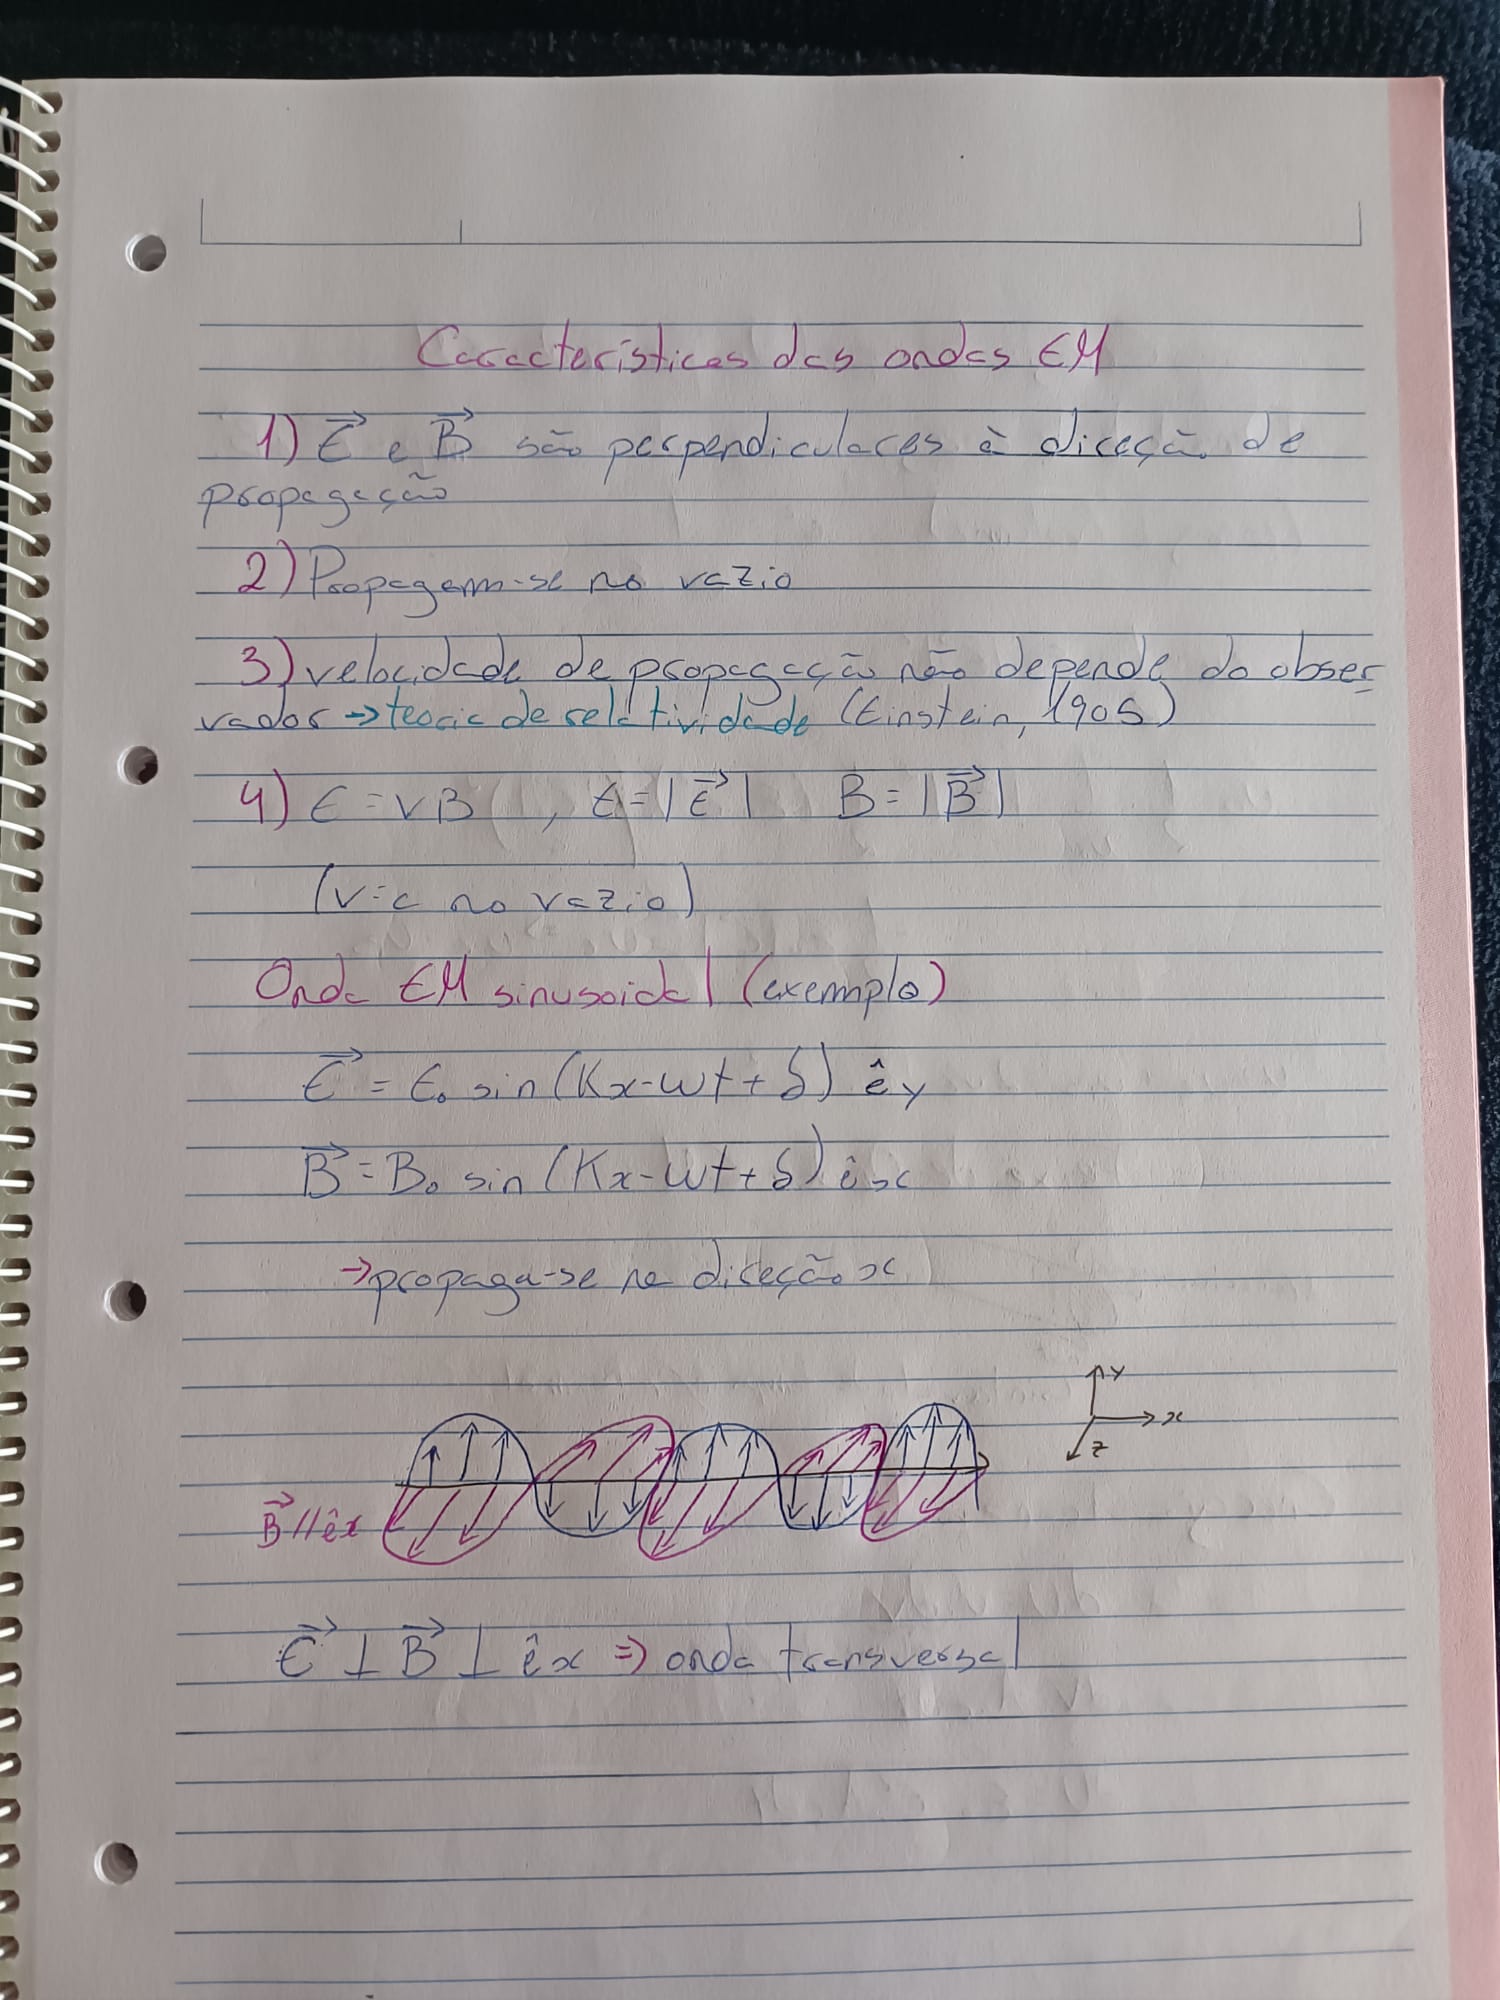 Características das ondas EM
1) E⃗ e B⃗ são perpendiculares à direção de
propagação
2) Propagam-se no vazio
3) velocidade de propagação não depende do obser
vador → teoria de relatividade (Einstein, 1905)
4) E = vB , E = |E⃗| B = |B⃗|
(v = c no vazio)
Onda EM sinusoidal (exemplo)
E⃗ = E₀ sin (Kx - ωt + δ) êy
B⃗ = B₀ sin (Kx - ωt + δ) êx
→ propaga-se na direção x
y
x
z
B⃗ // êx
E⃗ ⊥ B⃗ ⊥ êx ⇒ onda transversal